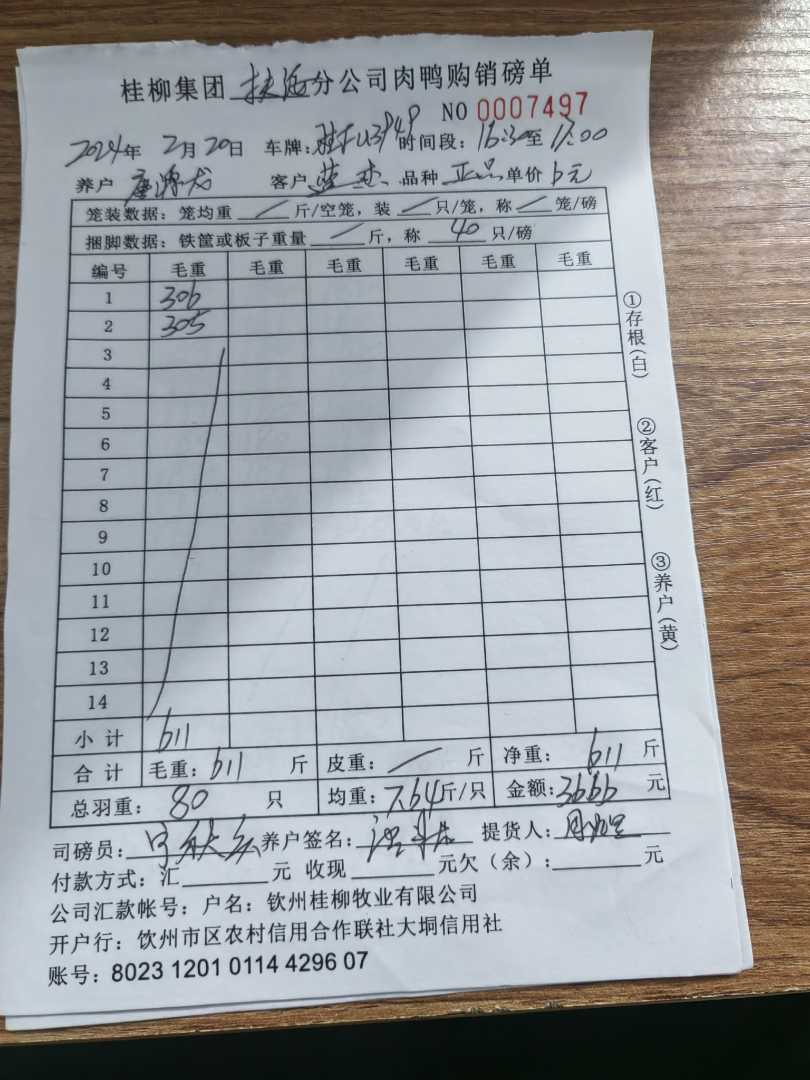 桂柳集团 扶海 分公司肉鸭购销磅单
NO 0007497
2024年 2月20日 车牌: 时间段: 16:30至 17:00
养户 客户 蓝杰 品种 正品 单价 6元
笼装数据: 笼均重 / 斤/空笼, 装 / 只/笼, 称 / 笼/磅
捆脚数据: 铁筐或板子重量 / 斤, 称 40 只/磅
编号 毛重 毛重 毛重 毛重 毛重 毛重
1 306
2 305
3
4
5
6
7
8
9
10
11
12
13
14
小 计 611
合 计 毛重: 611 斤 皮重: / 斤 净重: 611 斤
总羽重: 80 只 均重: 7.64 斤/只 金额: 3666 元
司磅员: 养户签名: 提货人:
付款方式: 汇 元 收现 元欠(余): 元
公司汇款帐号: 户名: 钦州桂柳牧业有限公司
开户行: 钦州市区农村信用合作联社大垌信用社
账号: 8023 1201 0114 4296 07
①存根(白)
②客户(红)
③养户(黄)